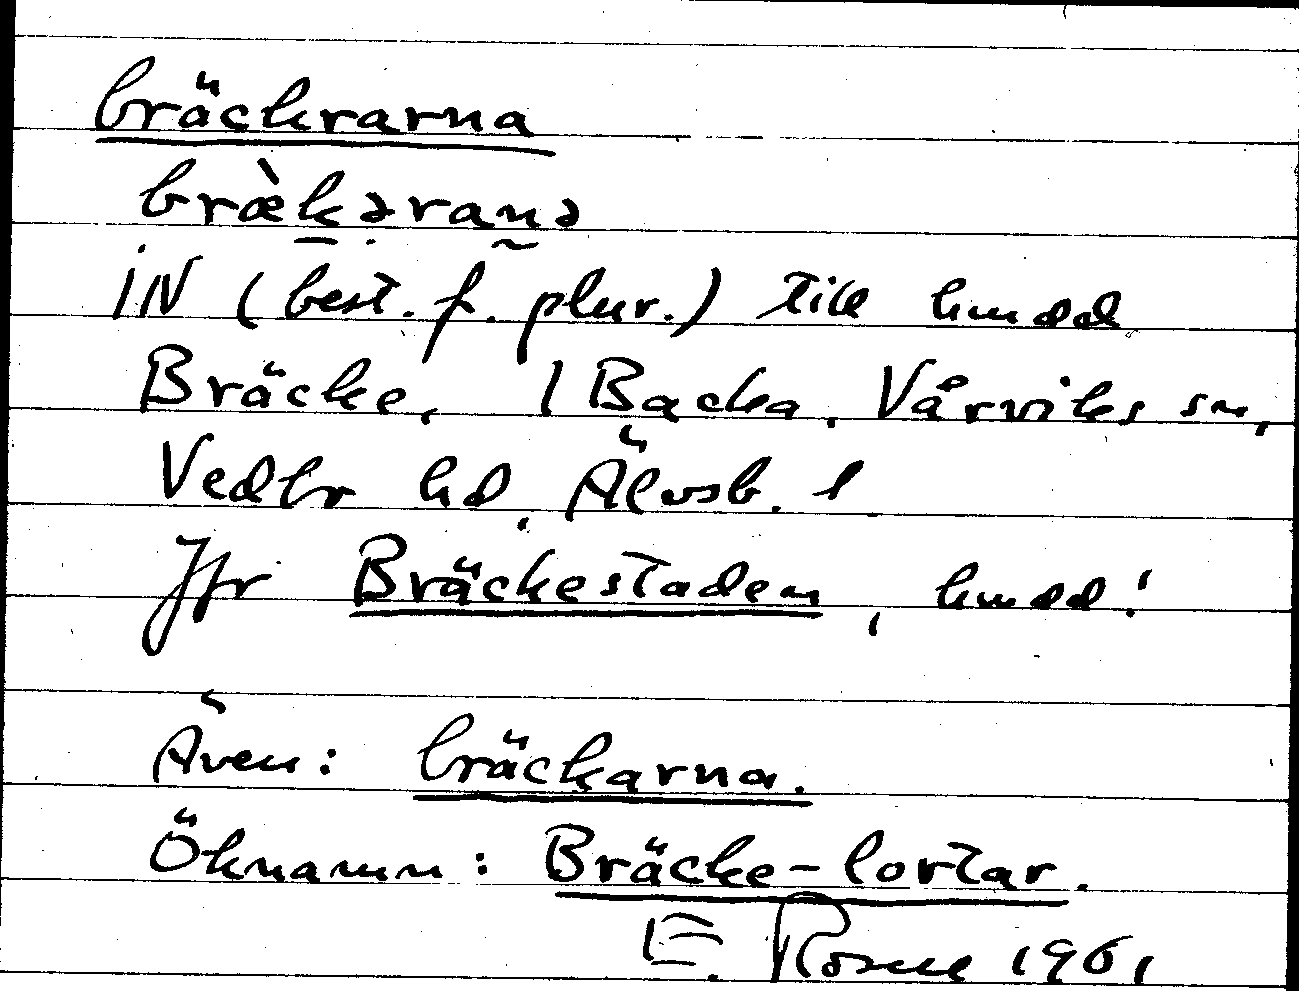 bräckrarna
bræ̀kəranə
iN (best. f. plur.) till hmdd
Bräcke, 1 Backa, Vårviks sn,
Vedbr hd, Älvsb. l
Jfr Bräckestaden, hmdd!
Även: bräckarna.
Öknamn: Bräcke-lortar.
E. Rosell 1961